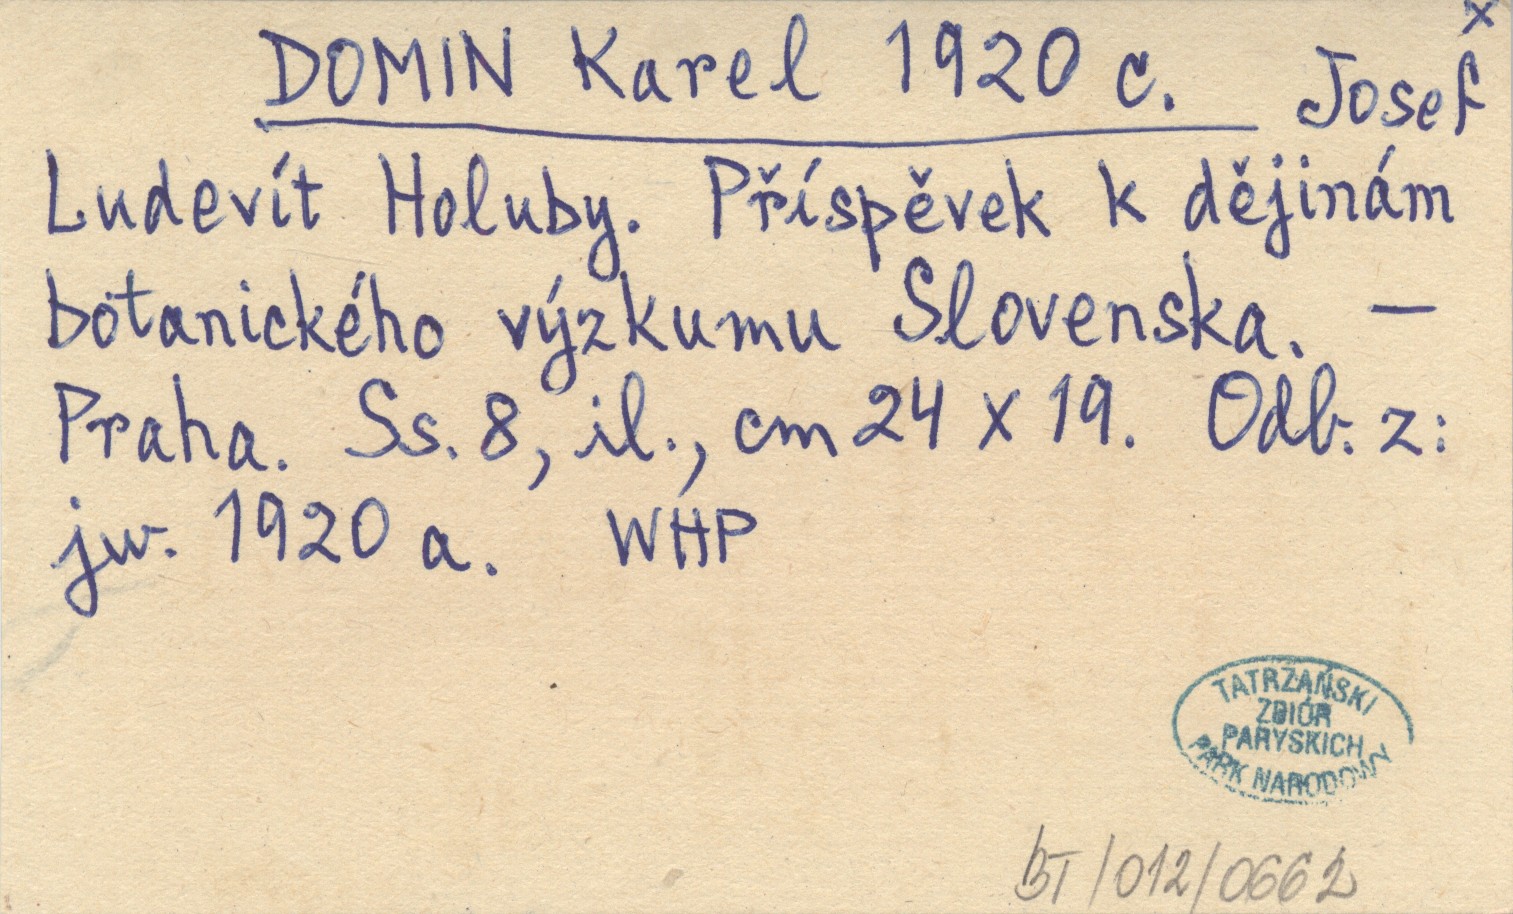 x
DOMIN Karel 1920 c. Josef
Ludevít Holuby. Příspěvek k dějinám
botanického výzkumu Slovenska. —
Praha. Ss. 8, il., cm 24 x 19. Odb. z:
jw. 1920 a. WHP
TATRZAŃSKI
ZBIÓR
PARYSKICH
PARK NARODOWY
BT/012/0662